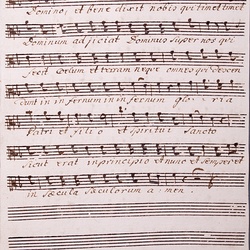 Domino, et bene dixit nobis qui timet timet
Dominum adjiciat Dominus super nos qui
fecit Coelum et terram neqve omnes qui descen
dunt in infernum in infernum glo ria
Patri et filio et spiritui Sancto
Sicut erat in principio et nunc et semper et
in Sæcula Sæculorum a men.